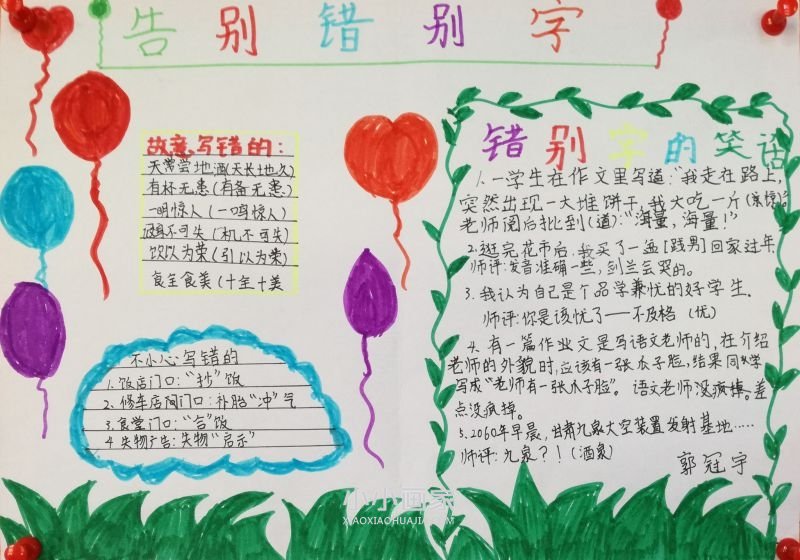 告别错别字
故意写错的:
天常尝地酒(天长地久)
有杯无患(有备无患)
一明惊人(一鸣惊人)
不可失(机不可失)
饮以为荣(引以为荣)
食全食美(十全十美
不小心写错的
1.饭店门口:“抄”饭
2、修车店间门口:补胎“冲”气
3.食堂门口:“合”饭
4.失物广告:失物“启示”
错别字的笑话
1.一学生在作文里写道:“我走在路上,
突然出现一大堆饼干,我大吃一斤(惊)。
老师阅后批到(道):“海量,海量!”
2.逛完花市后,我买了一盆[贱男]回家过年
师评:发音准确一些,到兰会哭的。
3.我认为自己是个品学兼忧的好学生.
师评:你是该忧了——不及格(优)
4.有一篇作业文是写语文老师的,在介绍
老师的外貌时,应该有一张瓜子脸,结果同学
写成“老师有一张爪子脸”。语文老师没疯掉。差
点没疯掉。
5.2060年早晨,甘肃九泉太空装置发射基地……
师评:九泉?!(酒泉)
郭冠宇
小小画家
XIAOXIAOHUAJIA.COM